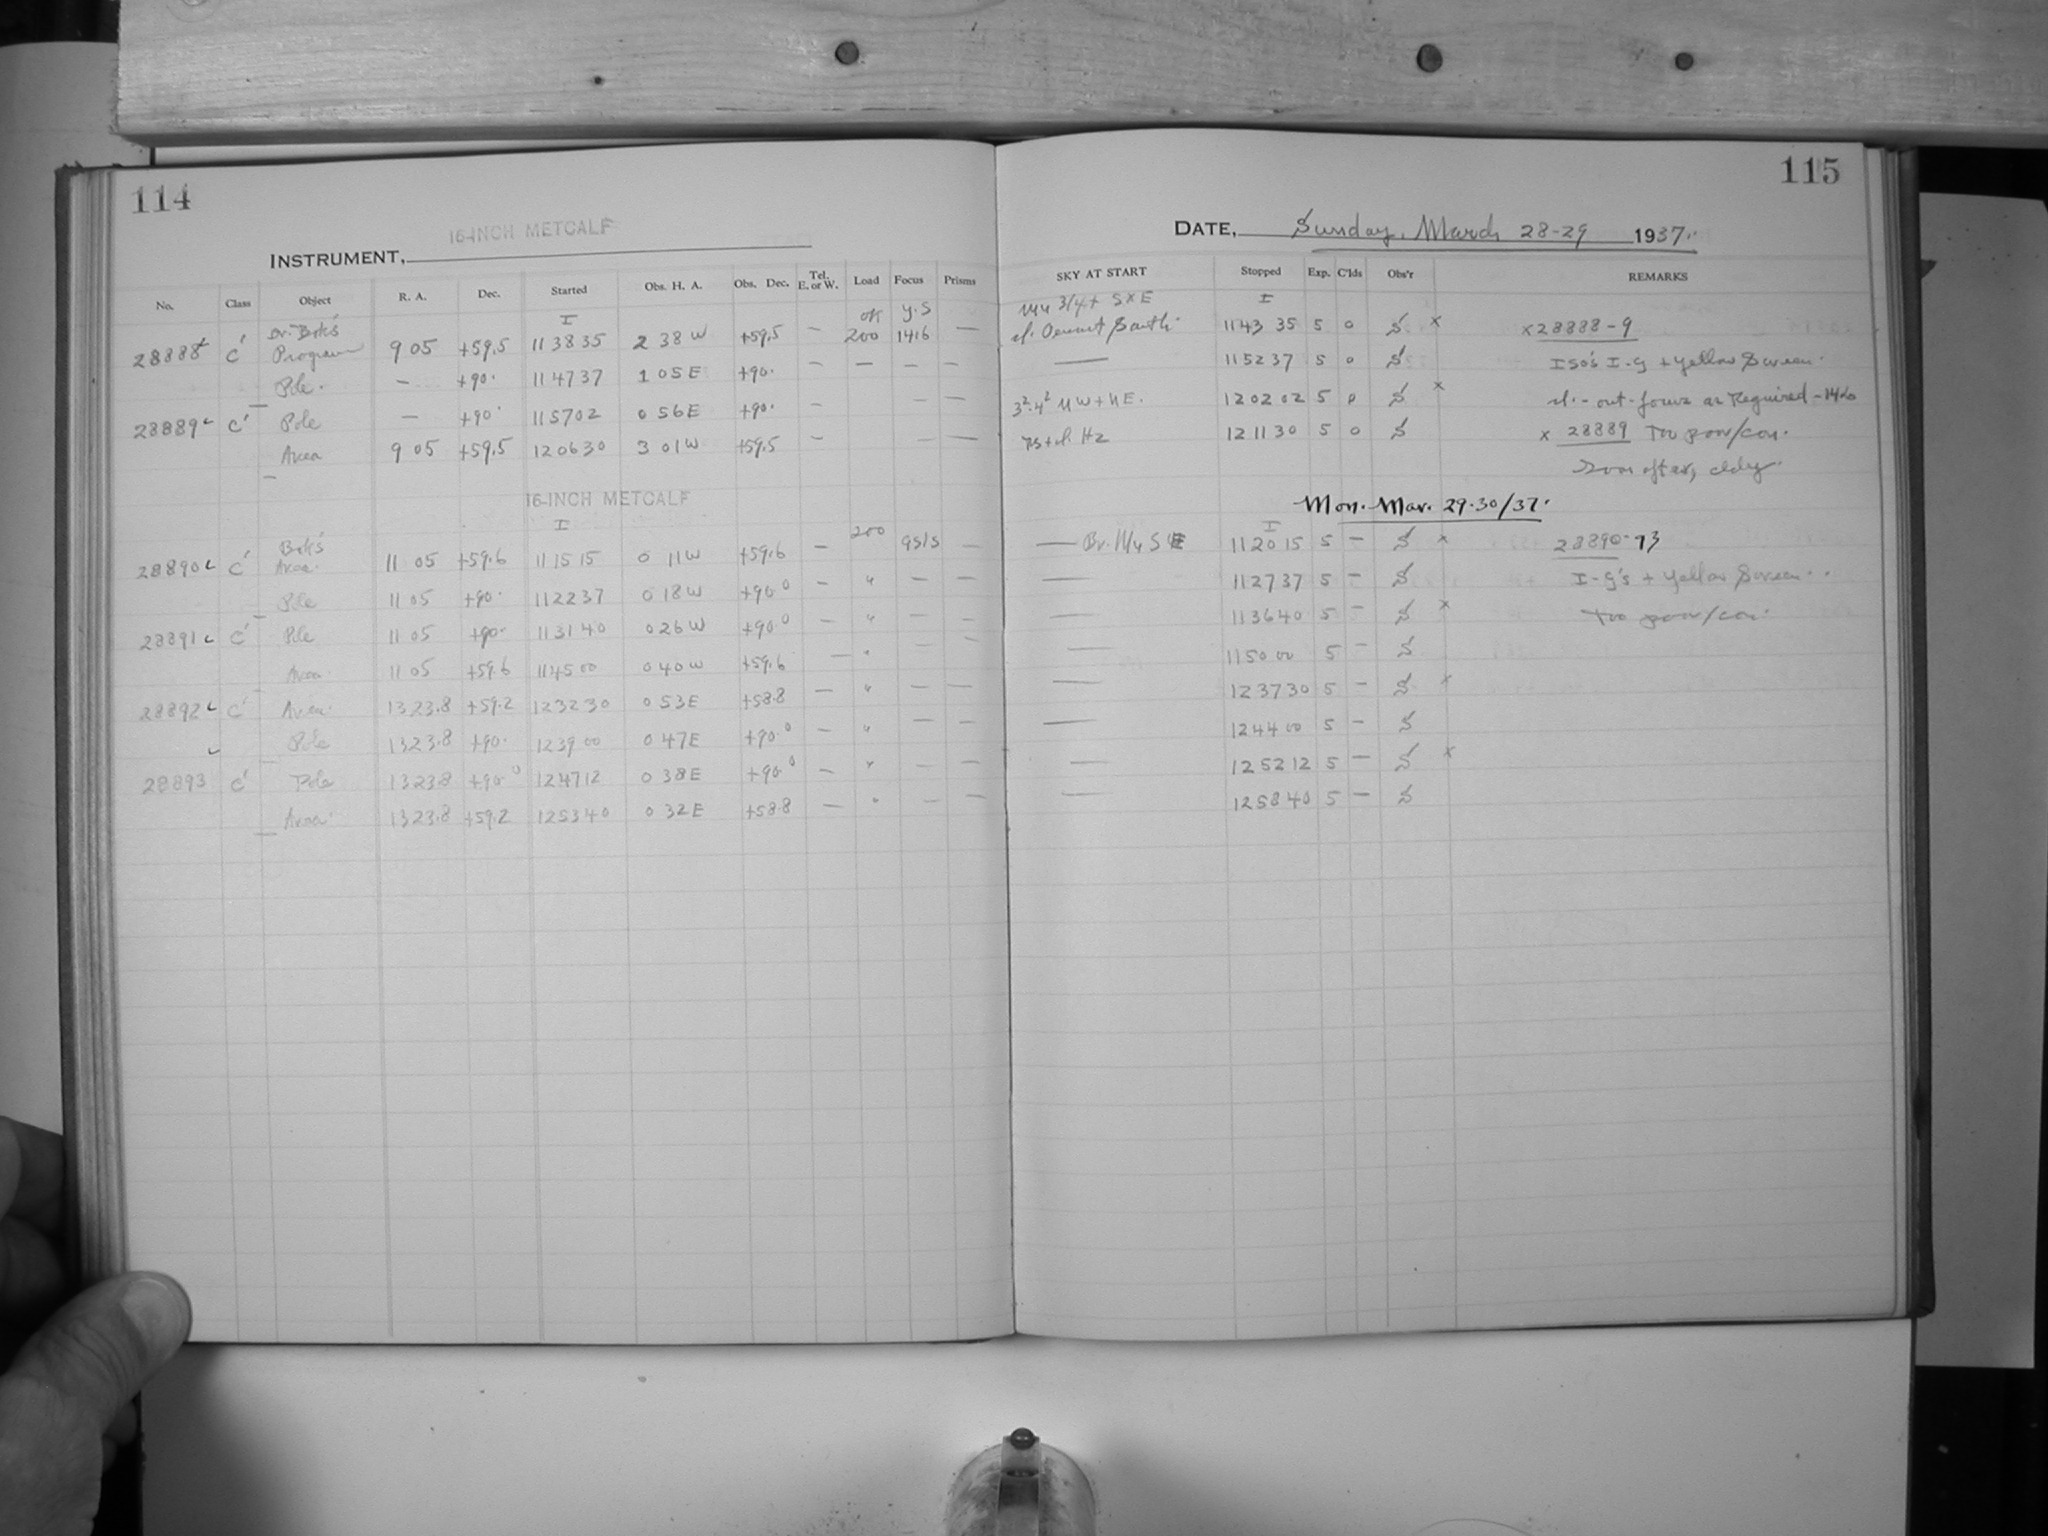 114
16-INCH METCALF
INSTRUMENT,
No. Class Object R. A. Dec. Started Obs. H. A. Obs. Dec. Tel. E. or W. Load Focus Prisms
I OK Y.S
Dr. Bok's
28888 C' Program 9 05 +59.5 11 38 35 2 38 W +59.5 — 200 1416 —
Pole. — +90. 11 47 37 1 05 E +90. — — — —
28889 C' Pole — +90 11 57 02 0 56 E +90. — — —
Area 9 05 +59.5 12 06 30 3 01 W +59.5 — — —
16-INCH METCALF
I
Bok's 200
28890 C' Area. 11 05 +59.6 11 15 15 0 11 W +59.6 — —
Pole 11 05 +90. 11 22 37 0 18 W +90.0 — " — —
28891 C' Pole 11 05 +90. 11 31 40 0 26 W +90.0 — " — —
Area. 11 05 +59.6 11 45 00 0 40 W +59.6 — " — —
28892 C' Area. 13 23.8 +59.2 12 32 30 0 53 E +58.8 — " — —
Pole 13 23.8 +90. 12 39 00 0 47 E +90.0 — " — —
28893 C' Pole 13 23.8 +90.0 12 47 12 0 38 E +90.0 — " — —
Area. 13 23.8 +59.2 12 53 40 0 32 E +58.8 — " — —
115
DATE, Sunday, March 28-29 1937.
SKY AT START Stopped Exp. C'lds Obs'r REMARKS
3/4+ S X E I
South. 11 43 35 5 0 S x x 28888-9
— 11 52 37 5 0 S Iso's I-G + Yellow Screen.
NW + NE. 12 02 02 5 0 S x out-focus as Required
Hz 12 11 30 5 0 S x 28889 Too poor/con.
Soon after, cldy.
Mon. Mar. 29-30/37.
I
— Br. S E 11 20 15 5 — S x 28890-93
— 11 27 37 5 — S I-G's + Yellow Screen.
— 11 36 40 5 — S x Too poor/con.
— 11 50 00 5 — S
— 12 37 30 5 — S x
— 12 44 00 5 — S
— 12 52 12 5 — S x
— 12 58 40 5 — S